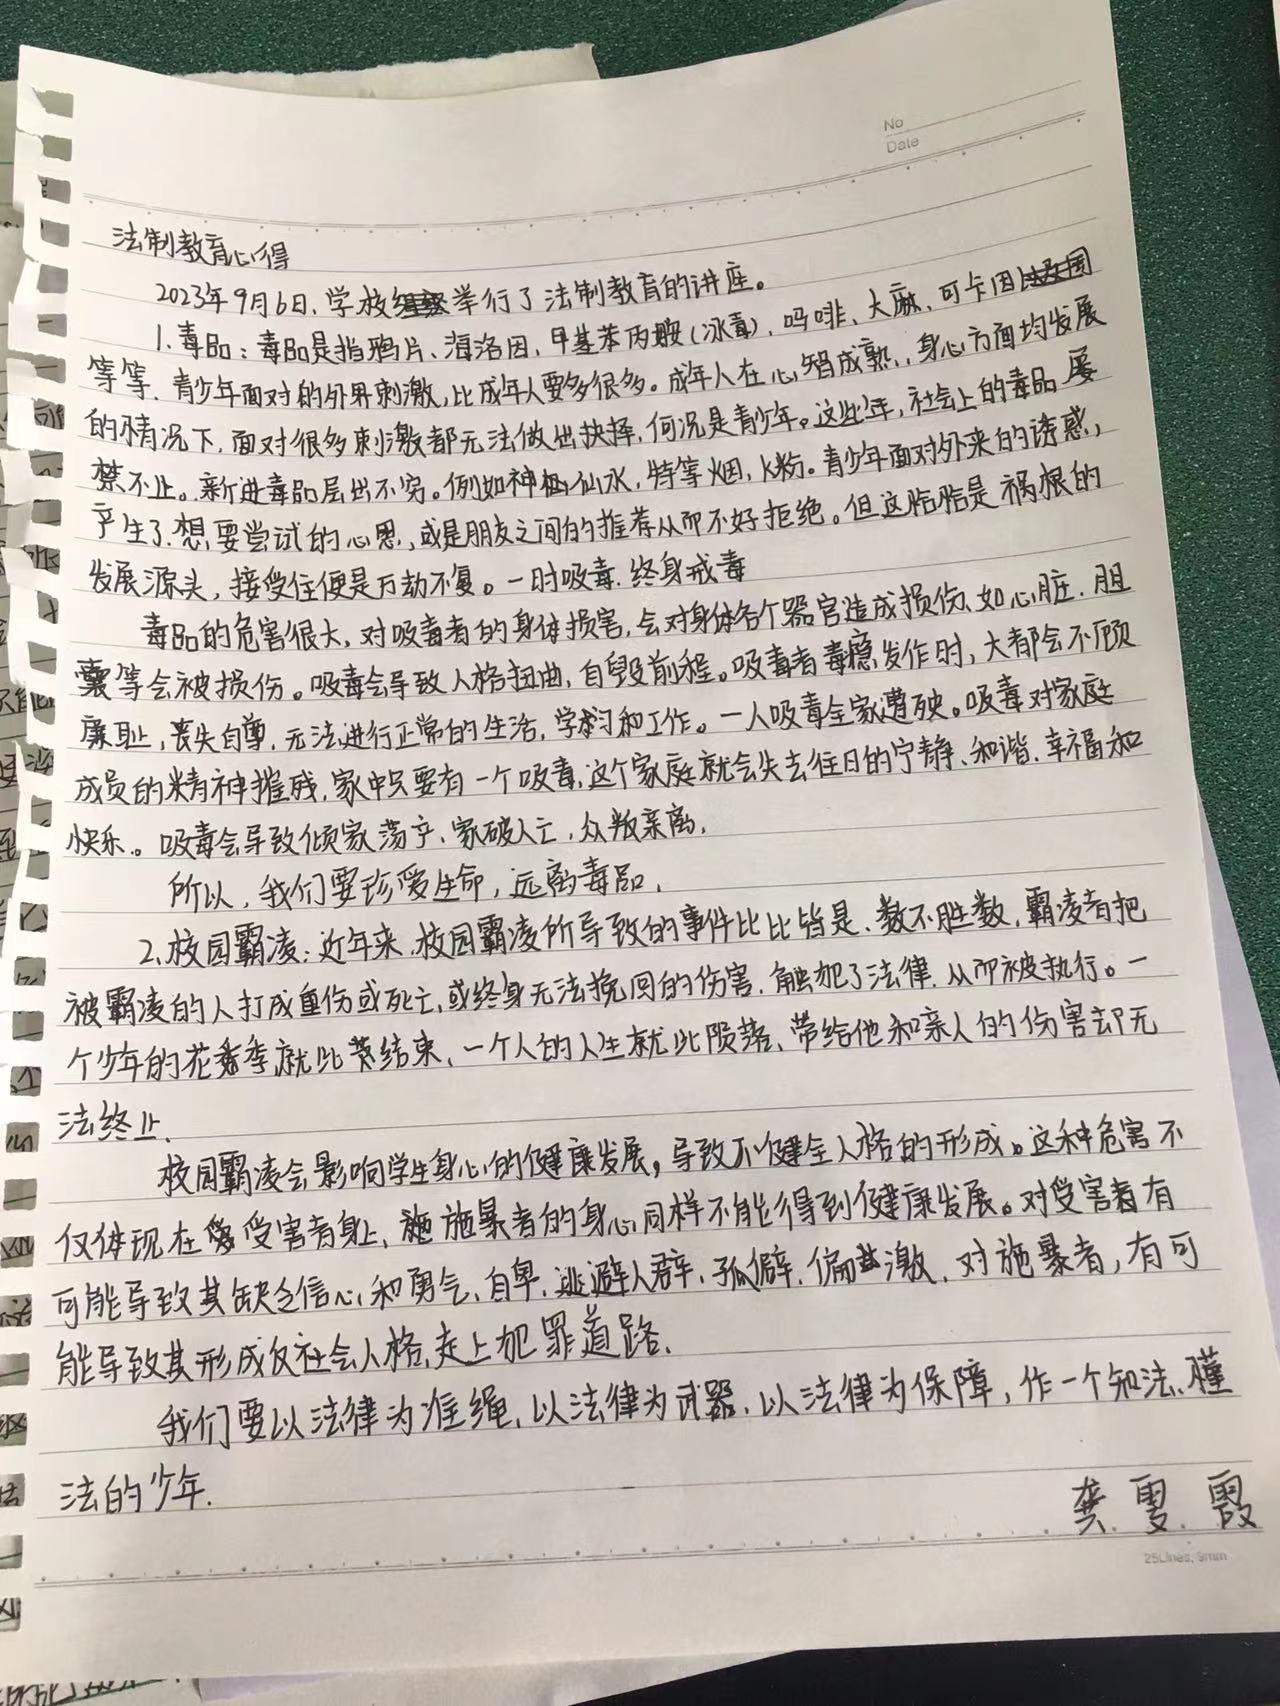 No
Date
法制教育心得
2023年9月6日，学校举行了法制教育的讲座。
1.毒品：毒品是指鸦片、海洛因，甲基苯丙胺（冰毒），吗啡、大麻、可卡因
等等，青少年面对的外界刺激，比成年人要多很多。成年人在心智成熟，身心方面均发展
的情况下，面对很多刺激都无法做出抉择，何况是青少年。这些年，社会上的毒品屡
禁不止。新进毒品层出不穷。例如神仙水，特等烟，K粉。青少年面对外来的诱惑，
产生了想要尝试的心思，或是朋友之间的推荐从而不好拒绝。但这恰恰是祸根的
发展源头，接受住便是万劫不复。一时吸毒，终身戒毒
毒品的危害很大，对吸毒者的身体损害，会对身体各个器官造成损伤，如心脏，胆
囊等会被损伤。吸毒会导致人格扭曲，自毁前程。吸毒者毒瘾发作时，大都会不顾
廉耻，丧失自尊，无法进行正常的生活，学习和工作。一人吸毒全家遭殃。吸毒对家庭
成员的精神摧残，家中只要有一个吸毒，这个家庭就会失去往日的宁静、和谐，幸福和
快乐。吸毒会导致倾家荡产，家破人亡，众叛亲离，
所以，我们要珍爱生命，远离毒品，
2，校园霸凌：近年来，校园霸凌所导致的事件比比皆是，数不胜数，霸凌者把
被霸凌的人打成重伤或死亡，或终身无法挽回的伤害，触犯了法律，从而被执行。一
个少年的花季就此结束，一个人的人生就此陨落，带给他和亲人的伤害却无
法终止，
校园霸凌会影响学生身心的健康发展，导致不健全人格的形成。这种危害不
仅体现在受害者身上，施暴者的身心同样不能得到健康发展。对受害者有
可能导致其缺乏信心和勇气，自卑，逃避人群，孤僻，偏激，对施暴者，有可
能导致其形成反社会人格，走上犯罪道路，
我们要以法律为准绳，以法律为武器，以法律为保障，作一个知法、懂
法的少年.
龚雯霞
25Lines, 9mm